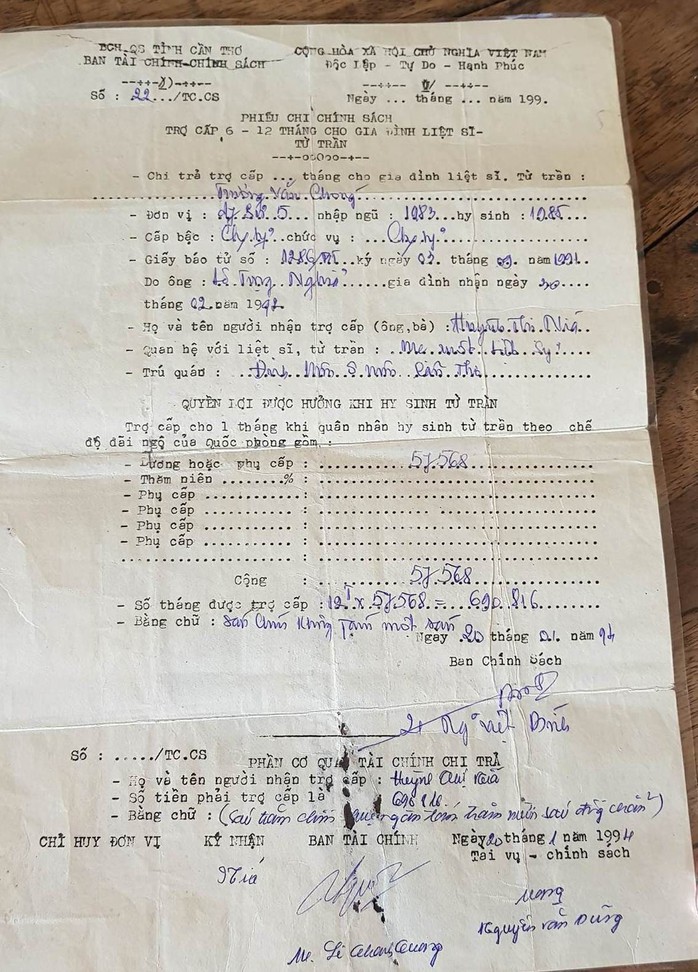 BCH.QS TỈNH CẦN THƠ
BAN TÀI CHÍNH-CHÍNH SÁCH
CỘNG HÒA XÃ HỘI CHỦ NGHĨA VIỆT NAM
Độc Lập - Tự Do - Hạnh Phúc
Số : 22.../TC.CS
Ngày ... tháng ... năm 199.
PHIẾU CHI CHÍNH SÁCH
TRỢ CẤP 6 - 12 THÁNG CHO GIA ĐÌNH LIỆT SĨ-
TỬ TRẦN
- Chi trả trợ cấp ... tháng cho gia đình liệt sĩ. Tử trần :
Trương Văn
- Đơn vị : Sư 5... nhập ngũ : 1983...hy sinh : 1985...
- Cấp bậc : chức vụ :
- Giấy báo tử số : ký ngày 03. tháng 09. năm 1991
Do ông : gia đình nhận ngày 20
tháng 02 năm 1992
- Họ và tên người nhận trợ cấp (ông,bà) : Huỳnh Thị
- Quan hệ với liệt sĩ, tử trần : Mẹ
- Trú quán : Cần Thơ
QUYỀN LỢI ĐƯỢC HƯỞNG KHI HY SINH TỬ TRẦN
Trợ cấp cho 1 tháng khi quân nhân hy sinh tử trần theo chế
độ đãi ngộ của Quốc phong gồm :
- Lương hoặc phụ cấp : 57.568
- Thâm niên ........% :
- Phụ cấp ........... :
- Phụ cấp ........... :
- Phụ cấp ........... :
- Phụ cấp ........... :
Cộng : 57.568
- Số tháng được trợ cấp : 12T x 57.568 = 690.816
- Bằng chữ : Sáu chín không tám một sáu
Ngày 20 tháng 01. năm 94
Ban Chính Sách
Số : ...../TC.CS
PHẦN CƠ QUAN TÀI CHÍNH CHI TRẢ
- Họ và tên người nhận trợ cấp : Huỳnh Thị
- Số tiền phải trợ cấp là
- Bằng chữ : (Sáu trăm chín mươi ngàn tám trăm mười sáu đồng chẵn)
CHỈ HUY ĐƠN VỊ
KÝ NHẬN
BAN TÀI CHÍNH
Ngày 20 tháng 1 năm 1994
Tài vụ - chính sách
Nguyễn Văn Dũng